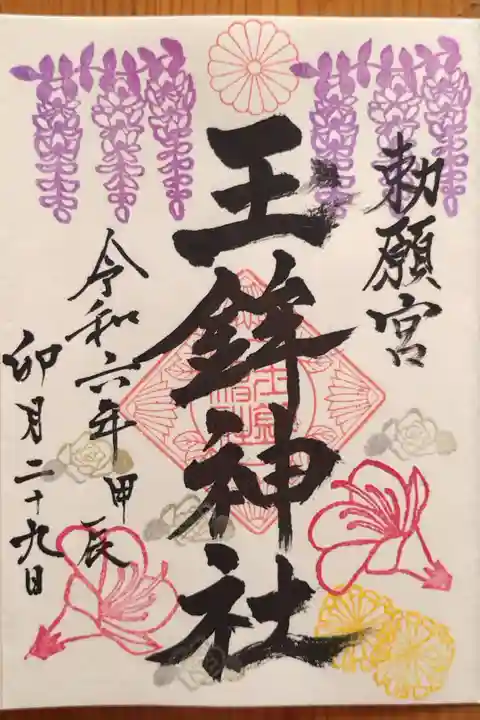 勅願宮
玉鉾神社
令和六年甲辰
卯月二十九日